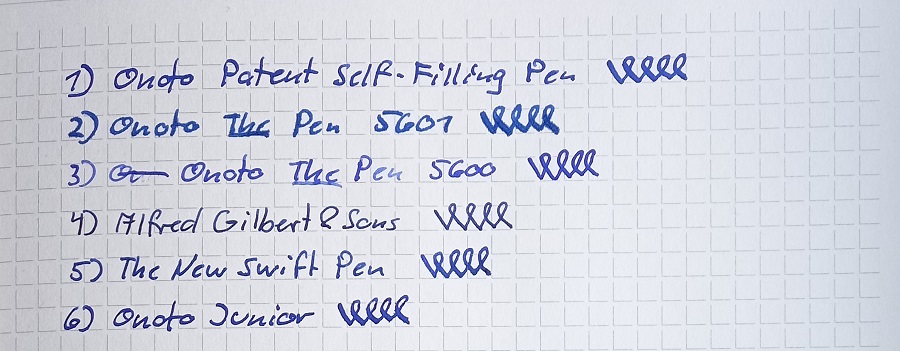 1) Onoto Patent Self-Filling Pen
2) Onoto The Pen 5601
3) Onoto The Pen 5600
4) Alfred Gilbert & Sons
5) The New Swift Pen
6) Onoto Junior